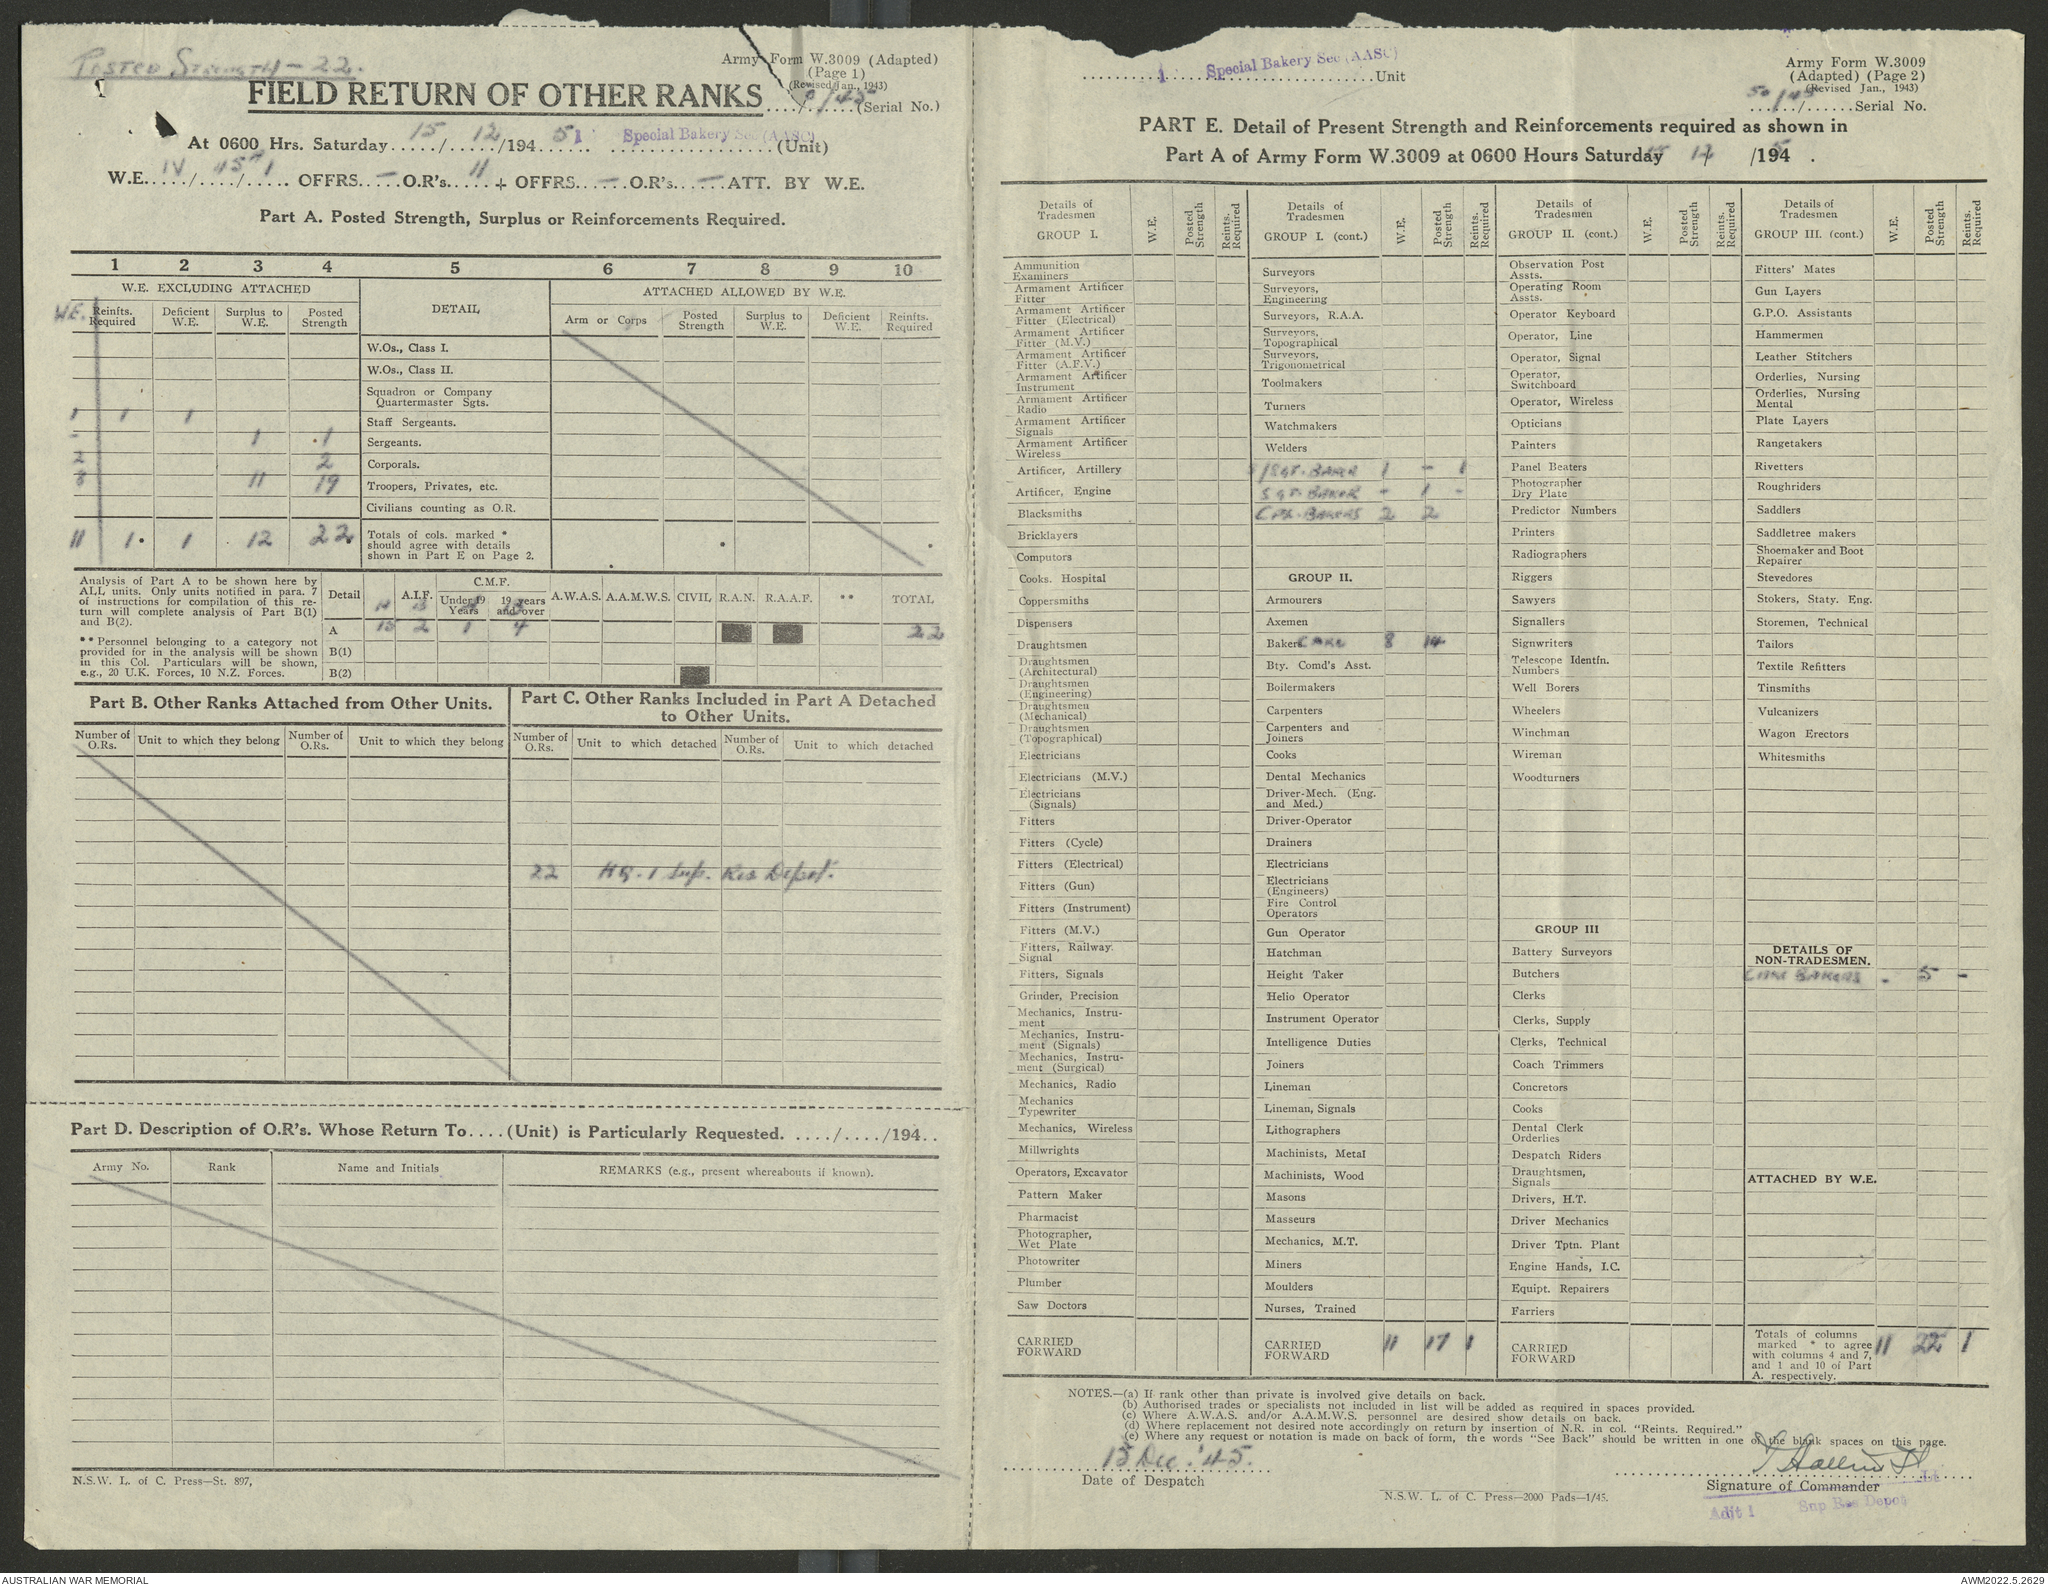 Posted Strength - 22.
Army Form W.3009 (Adapted)
(Page 1)
(Revised Jan., 1943)
FIELD RETURN OF OTHER RANKS ..../..../45 (Serial No.)
At 0600 Hrs. Saturday 15/12/1945 1 Special Bakery Sec (AASC) (Unit)
W.E. IV/45/1 OFFRS. — O.R's. 11 + OFFRS. — O.R's. — ATT. BY W.E.
Part A. Posted Strength, Surplus or Reinforcements Required.
1 2 3 4 5 6 7 8 9 10
W.E. EXCLUDING ATTACHED DETAIL ATTACHED ALLOWED BY W.E.
W.E. Reinfts. Required Deficient W.E. Surplus to W.E. Posted Strength Arm or Corps Posted Strength Surplus to W.E. Deficient W.E. Reinfts. Required
W.Os., Class I.
W.Os., Class II.
Squadron or Company Quartermaster Sgts.
1 1 1 Staff Sergeants.
- 1 1 Sergeants.
2 2 Corporals.
8 11 19 Troopers, Privates, etc.
Civilians counting as O.R.
11 1 1 12 22 Totals of cols. marked * should agree with details shown in Part E on Page 2.
Analysis of Part A to be shown here by
ALL units. Only units notified in para. 7
of instructions for compilation of this re-
turn will complete analysis of Part B(1)
and B(2).
** Personnel belonging to a category not
provided for in the analysis will be shown
in this Col. Particulars will be shown,
e.g., 20 U.K. Forces, 10 N.Z. Forces.
Detail A.I.F. C.M.F. Under 19 Years 19 years and over A.W.A.S. A.A.M.W.S. CIVIL R.A.N. R.A.A.F. ** TOTAL
A 15 2 1 4 22
B(1)
B(2)
Part B. Other Ranks Attached from Other Units.
Number of O.Rs. Unit to which they belong Number of O.Rs. Unit to which they belong
Part C. Other Ranks Included in Part A Detached
to Other Units.
Number of O.Rs. Unit to which detached Number of O.Rs. Unit to which detached
22 HQ. 1 Sup. Res Depot.
Part D. Description of O.R's. Whose Return To....(Unit) is Particularly Requested. ..../..../194..
Army No. Rank Name and Initials REMARKS (e.g., present whereabouts if known).
N.S.W. L. of C. Press—St. 897,
1 Special Bakery Sec (AASC) Unit
Army Form W.3009
(Adapted) (Page 2)
(Revised Jan., 1943)
50/45 Serial No.
PART E. Detail of Present Strength and Reinforcements required as shown in
Part A of Army Form W.3009 at 0600 Hours Saturday 15 12 /1945.
Details of Tradesmen GROUP I. W.E. Posted Strength Reints. Required
Ammunition Examiners
Armament Artificer Fitter
Armament Artificer Fitter (Electrical)
Armament Artificer Fitter (M.V.)
Armament Artificer Fitter (A.F.V.)
Armament Artificer Instrument
Armament Artificer Radio
Armament Artificer Signals
Armament Artificer Wireless
Artificer, Artillery
Artificer, Engine
Blacksmiths
Bricklayers
Computors
Cooks. Hospital
Coppersmiths
Dispensers
Draughtsmen
Draughtsmen (Architectural)
Draughtsmen (Engineering)
Draughtsmen (Mechanical)
Draughtsmen (Topographical)
Electricians
Electricians (M.V.)
Electricians (Signals)
Fitters
Fitters (Cycle)
Fitters (Electrical)
Fitters (Gun)
Fitters (Instrument)
Fitters (M.V.)
Fitters, Railway. Signal
Fitters, Signals
Grinder, Precision
Mechanics, Instru-
ment
Mechanics, Instru-
ment (Signals)
Mechanics, Instru-
ment (Surgical)
Mechanics, Radio
Mechanics Typewriter
Mechanics, Wireless
Millwrights
Operators, Excavator
Pattern Maker
Pharmacist
Photographer, Wet Plate
Photowriter
Plumber
Saw Doctors
CARRIED FORWARD
Details of Tradesmen GROUP I. (cont.) W.E. Posted Strength Reints. Required
Surveyors
Surveyors, Engineering
Surveyors, R.A.A.
Surveyors, Topographical
Surveyors, Trigonometrical
Toolmakers
Turners
Watchmakers
Welders
S/Sgt. BAKER 1 - 1
SGT. BAKER - 1 -
CPL. BAKERS 2 2
GROUP II.
Armourers
Axemen
Bakers CAKE 8 14
Bty. Comd's Asst.
Boilermakers
Carpenters
Carpenters and Joiners
Cooks
Dental Mechanics
Driver-Mech. (Eng. and Med.)
Driver-Operator
Drainers
Electricians
Electricians (Engineers)
Fire Control Operators
Gun Operator
Hatchman
Height Taker
Helio Operator
Instrument Operator
Intelligence Duties
Joiners
Lineman
Lineman, Signals
Lithographers
Machinists, Metal
Machinists, Wood
Masons
Masseurs
Mechanics, M.T.
Miners
Moulders
Nurses, Trained
CARRIED FORWARD 11 17 1
Details of Tradesmen GROUP II. (cont.) W.E. Posted Strength Reints. Required
Observation Post Assts.
Operating Room Assts.
Operator Keyboard
Operator, Line
Operator, Signal
Operator, Switchboard
Operator, Wireless
Opticians
Painters
Panel Beaters
Photographer Dry Plate
Predictor Numbers
Printers
Radiographers
Riggers
Sawyers
Signallers
Signwriters
Telescope Identfn. Numbers
Well Borers
Wheelers
Winchman
Wireman
Woodturners
GROUP III
Battery Surveyors
Butchers
Clerks
Clerks, Supply
Clerks, Technical
Coach Trimmers
Concretors
Cooks
Dental Clerk Orderlies
Despatch Riders
Draughtsmen, Signals
Drivers, H.T.
Driver Mechanics
Driver Tptn. Plant
Engine Hands, I.C.
Equipt. Repairers
Farriers
CARRIED FORWARD
Details of Tradesmen GROUP III. (cont.) W.E. Posted Strength Reints. Required
Fitters' Mates
Gun Layers
G.P.O. Assistants
Hammermen
Leather Stitchers
Orderlies, Nursing
Orderlies, Nursing Mental
Plate Layers
Rangetakers
Rivetters
Roughriders
Saddlers
Saddletree makers
Shoemaker and Boot Repairer
Stevedores
Stokers, Staty. Eng.
Storemen, Technical
Tailors
Textile Refitters
Tinsmiths
Vulcanizers
Wagon Erectors
Whitesmiths
DETAILS OF NON-TRADESMEN.
CAKE BAKERS - 5 -
ATTACHED BY W.E.
Totals of columns marked * to agree with columns 4 and 7, and 1 and 10 of Part A. respectively. 11 22 1
NOTES.—(a) If rank other than private is involved give details on back.
(b) Authorised trades or specialists not included in list will be added as required in spaces provided.
(c) Where A.W.A.S. and/or A.A.M.W.S. personnel are desired show details on back.
(d) Where replacement not desired note accordingly on return by insertion of N.R. in col. "Reints. Required."
(e) Where any request or notation is made on back of form, the words "See Back" should be written in one of the blank spaces on this page.
15 Dec. '45.
Date of Despatch
Lt
Signature of Commander
Adjt 1 Sup Res Depot
N.S.W. L. of C. Press—2000 Pads—1/45.
AUSTRALIAN WAR MEMORIAL
AWM2022.5.2629